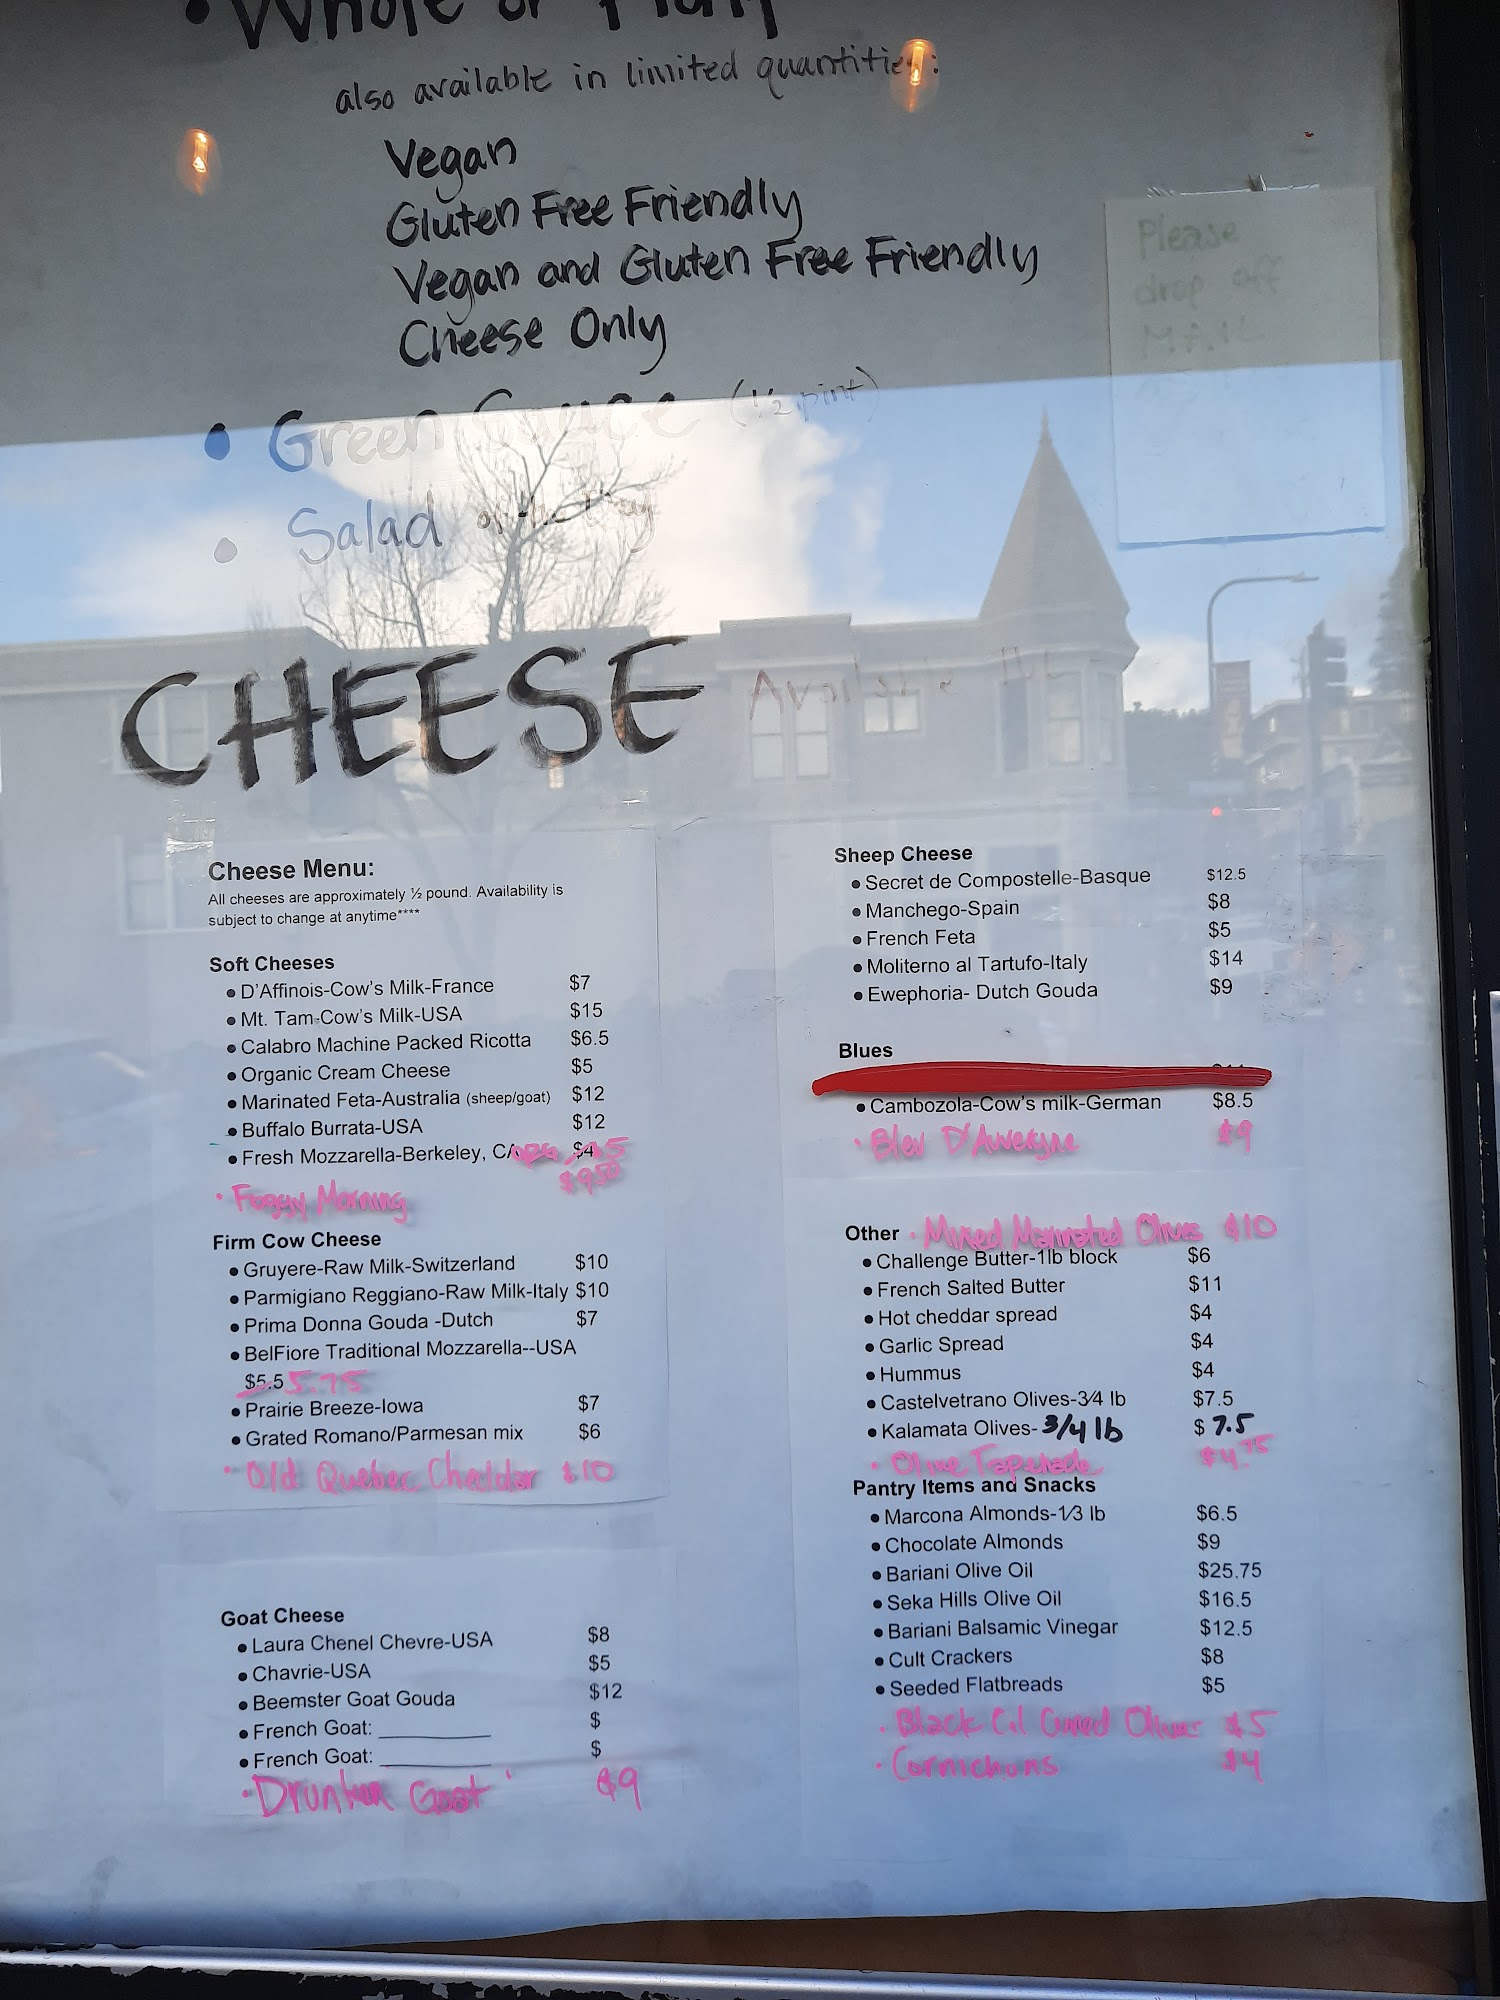 • Whole or Half
also available in limited quantities:
Vegan
Gluten Free Friendly
Vegan and Gluten Free Friendly
Cheese Only
• Green Sauce (½ pint)
• Salad of the Day
Please
drop off
MAIL
CHEESE Available
Cheese Menu:
All cheeses are approximately ½ pound. Availability is
subject to change at anytime****
Soft Cheeses
• D'Affinois-Cow's Milk-France $7
• Mt. Tam-Cow's Milk-USA $15
• Calabro Machine Packed Ricotta $6.5
• Organic Cream Cheese $5
• Marinated Feta-Australia (sheep/goat) $12
• Buffalo Burrata-USA $12
• Fresh Mozzarella-Berkeley, CA $4
• Foggy Morning $9.50
Firm Cow Cheese
• Gruyere-Raw Milk-Switzerland $10
• Parmigiano Reggiano-Raw Milk-Italy $10
• Prima Donna Gouda -Dutch $7
• BelFiore Traditional Mozzarella--USA
$5.5 5.75
• Prairie Breeze-Iowa $7
• Grated Romano/Parmesan mix $6
• Old Quebec Cheddar $10
Goat Cheese
• Laura Chenel Chevre-USA $8
• Chavrie-USA $5
• Beemster Goat Gouda $12
• French Goat: ________ $
• French Goat: ________ $
• Drunken Goat $9
Sheep Cheese
• Secret de Compostelle-Basque $12.5
• Manchego-Spain $8
• French Feta $5
• Moliterno al Tartufo-Italy $14
• Ewephoria- Dutch Gouda $9
Blues
• Cambozola-Cow's milk-German $8.5
• Bleu D'Auvergne $9
Other • Mixed Marinated Olives $10
• Challenge Butter-1lb block $6
• French Salted Butter $11
• Hot cheddar spread $4
• Garlic Spread $4
• Hummus $4
• Castelvetrano Olives-3⁄4 lb $7.5
• Kalamata Olives-3/4 lb $ 7.5
• Olive Tapenade $4.75
Pantry Items and Snacks
• Marcona Almonds-1⁄3 lb $6.5
• Chocolate Almonds $9
• Bariani Olive Oil $25.75
• Seka Hills Olive Oil $16.5
• Bariani Balsamic Vinegar $12.5
• Cult Crackers $8
• Seeded Flatbreads $5
• Black Oil Cured Olives $5
• Cornichons $4